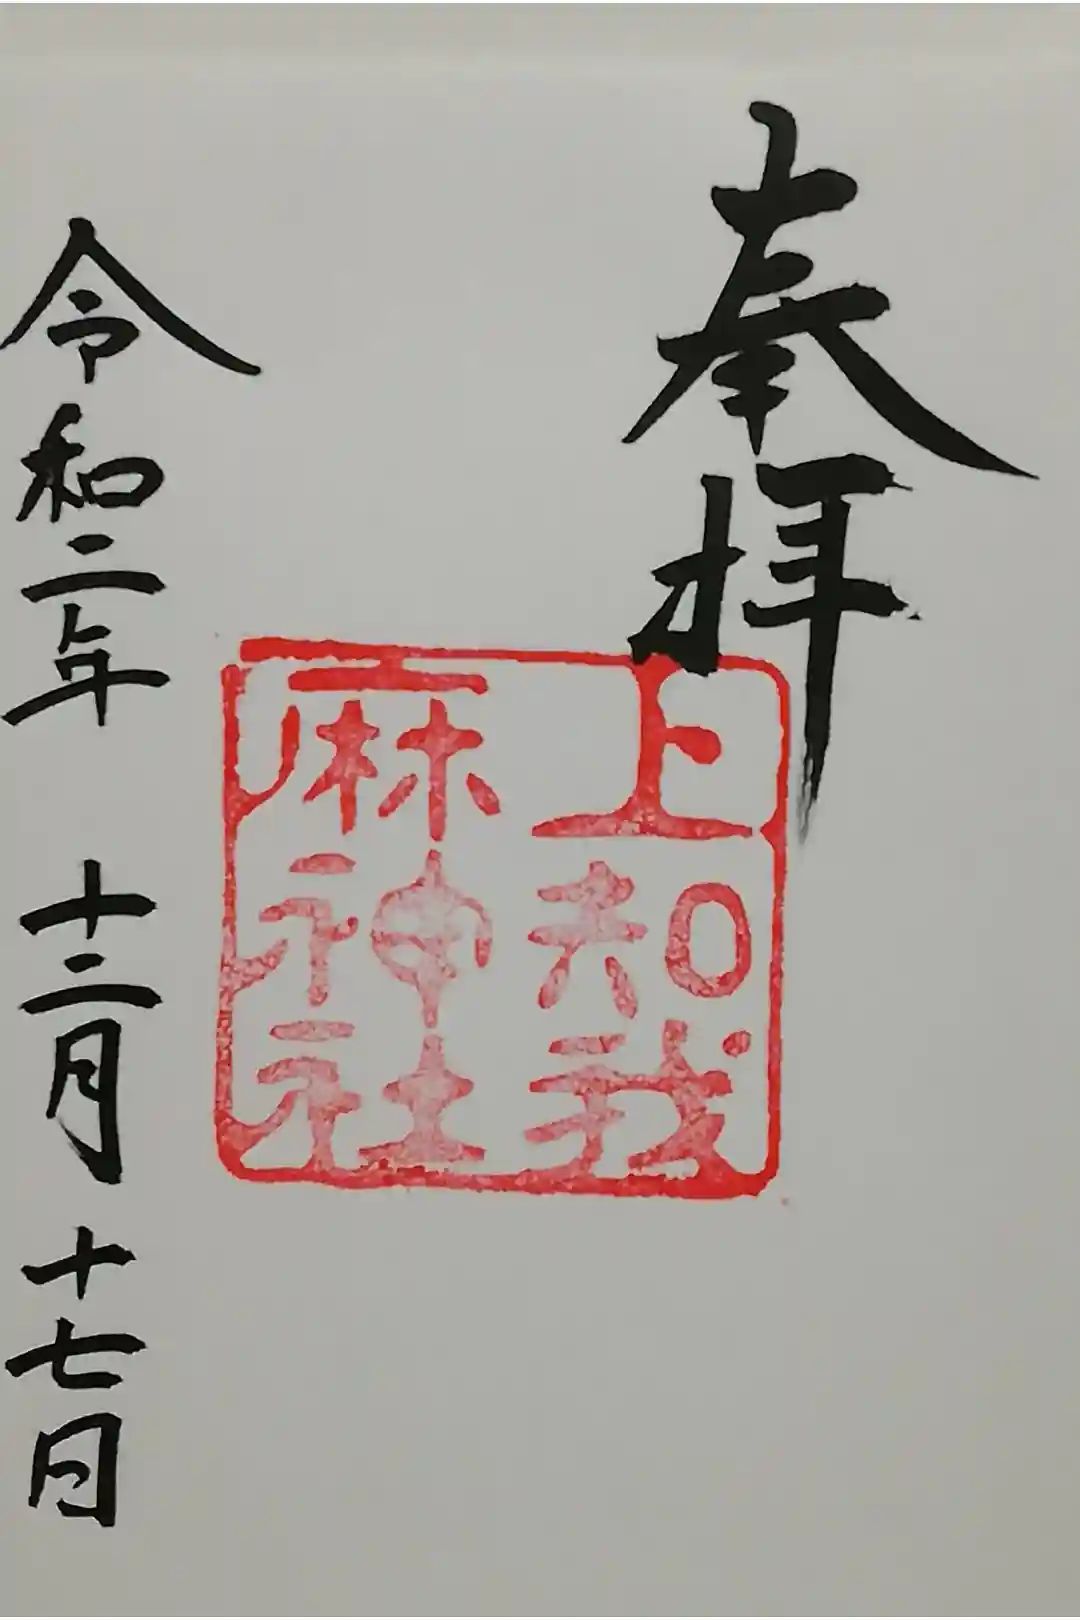 奉拝
上知我
麻神社
令和二年 十二月 十七日